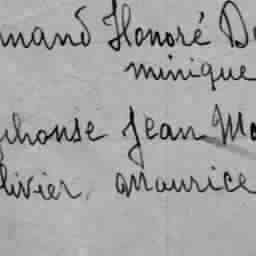 mand Honoré D
minique
phonse Jean Ma
livier, Maurice